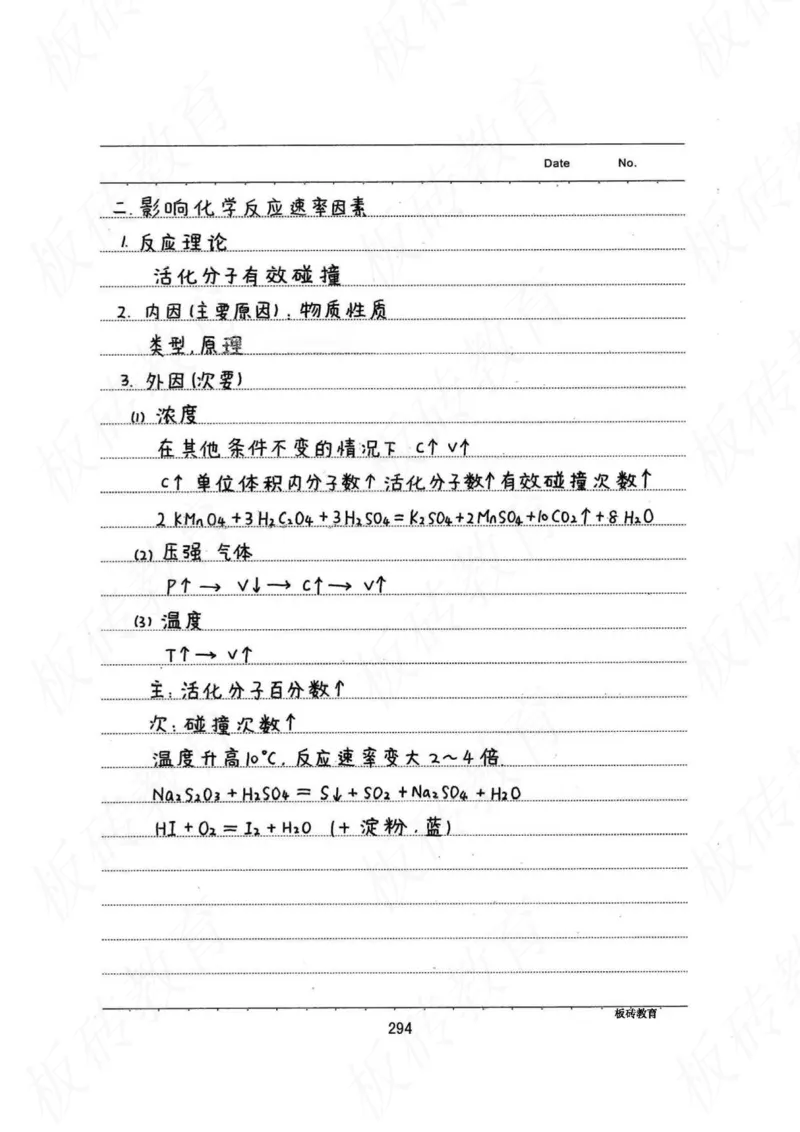 Date No.
二.影响化学反应速率因素
1. 反应理论
活化分子有效碰撞
2. 内因(主要原因):物质性质
类型,原理
3. 外因(次要)
(1) 浓度
在其他条件不变的情况下 C↑ V↑
C↑ 单位体积内分子数↑ 活化分子数↑ 有效碰撞次数↑
2 KMnO4 + 3 H2C2O4 + 3 H2SO4 = K2SO4 + 2 MnSO4 + 10 CO2↑ + 8 H2O
(2) 压强 气体
P↑ → V↓ → C↑ → V↑
(3) 温度
T↑ → V↑
主:活化分子百分数↑
次:碰撞次数↑
温度升高10℃,反应速率变大 2~4 倍
Na2S2O3 + H2SO4 = S↓ + SO2 + Na2SO4 + H2O
HI + O2 = I2 + H2O (+ 淀粉,蓝)
板砖教育
294